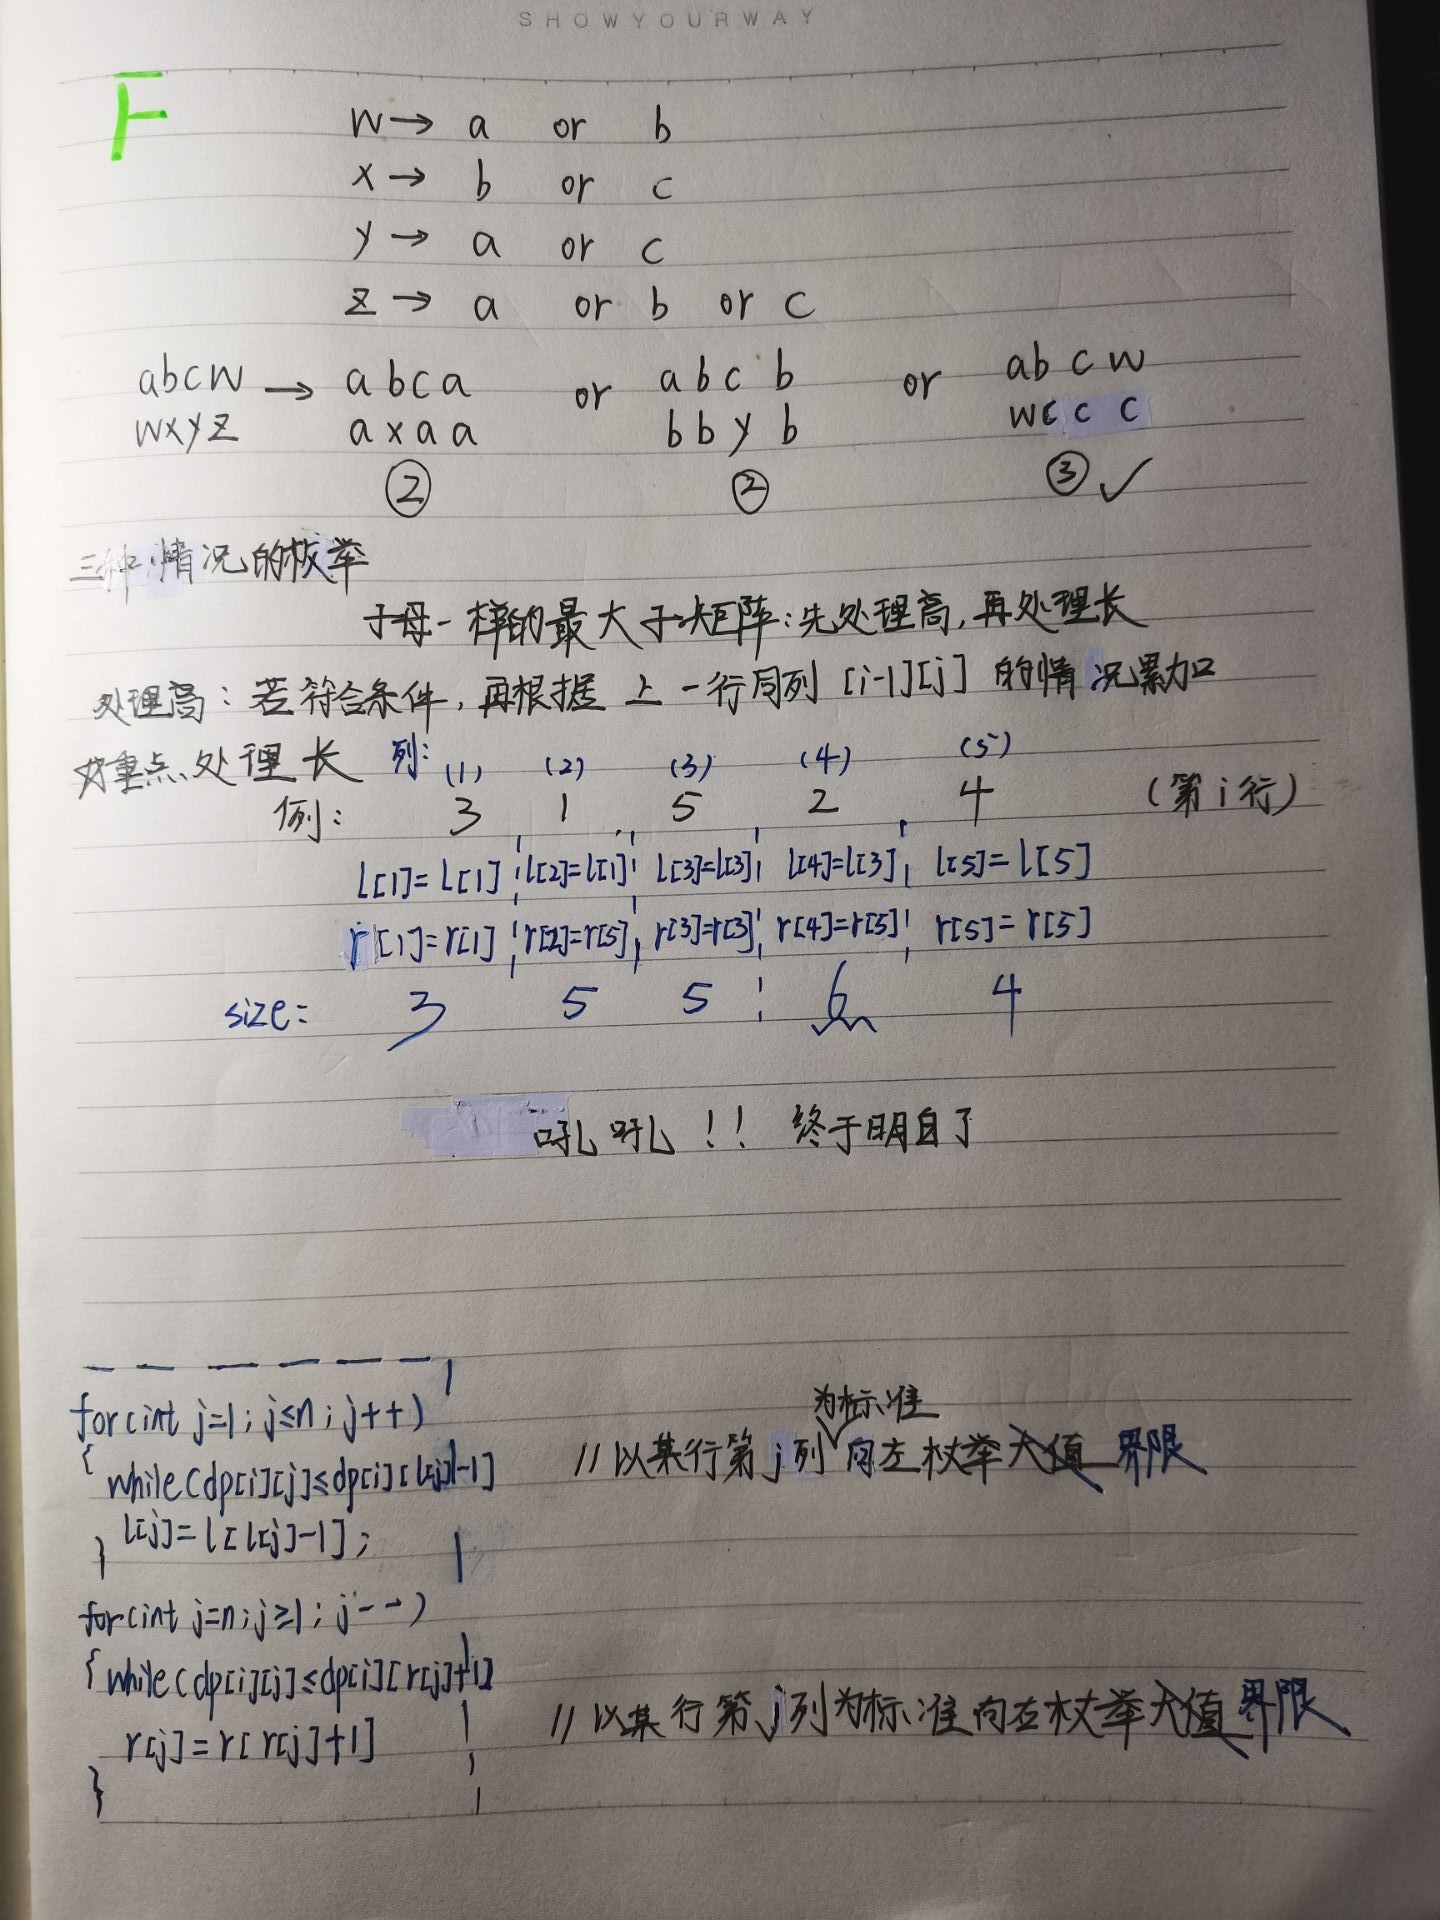 SHOWYOURWAY
F
w → a or b
x → b or c
y → a or c
z → a or b or c
abcw → abca or abcb or abcw
wxyz axaa bbyb wccc
② ② ③ ✓
三种情况的枚举
子母一样的最大子矩阵:先处理高,再处理长
处理高:若符合条件,再根据上一行同列[i-1][j]的情况累加
重点处理长 列: (1) (2) (3) (4) (5)
例: 3 1 5 2 4 (第i行)
l[1]=l[1] l[2]=l[1] l[3]=l[3] l[4]=l[3] l[5]=l[5]
r[1]=r[1] r[2]=r[5] r[3]=r[3] r[4]=r[5] r[5]=r[5]
size: 3 5 5 6 4
吼吼!! 终于明白了
for(int j=1; j≤n; j++)
{ while(dp[i][j]≤dp[i][l[j]-1] //以某行第j列为标准向左枚举大值界限
l[j]=l[l[j]-1];
}
for(int j=n; j≥1; j--)
{ while(dp[i][j]≤dp[i][r[j]+1] //以某行第j列为标准向右枚举大值界限
r[j]=r[r[j]+1]
}